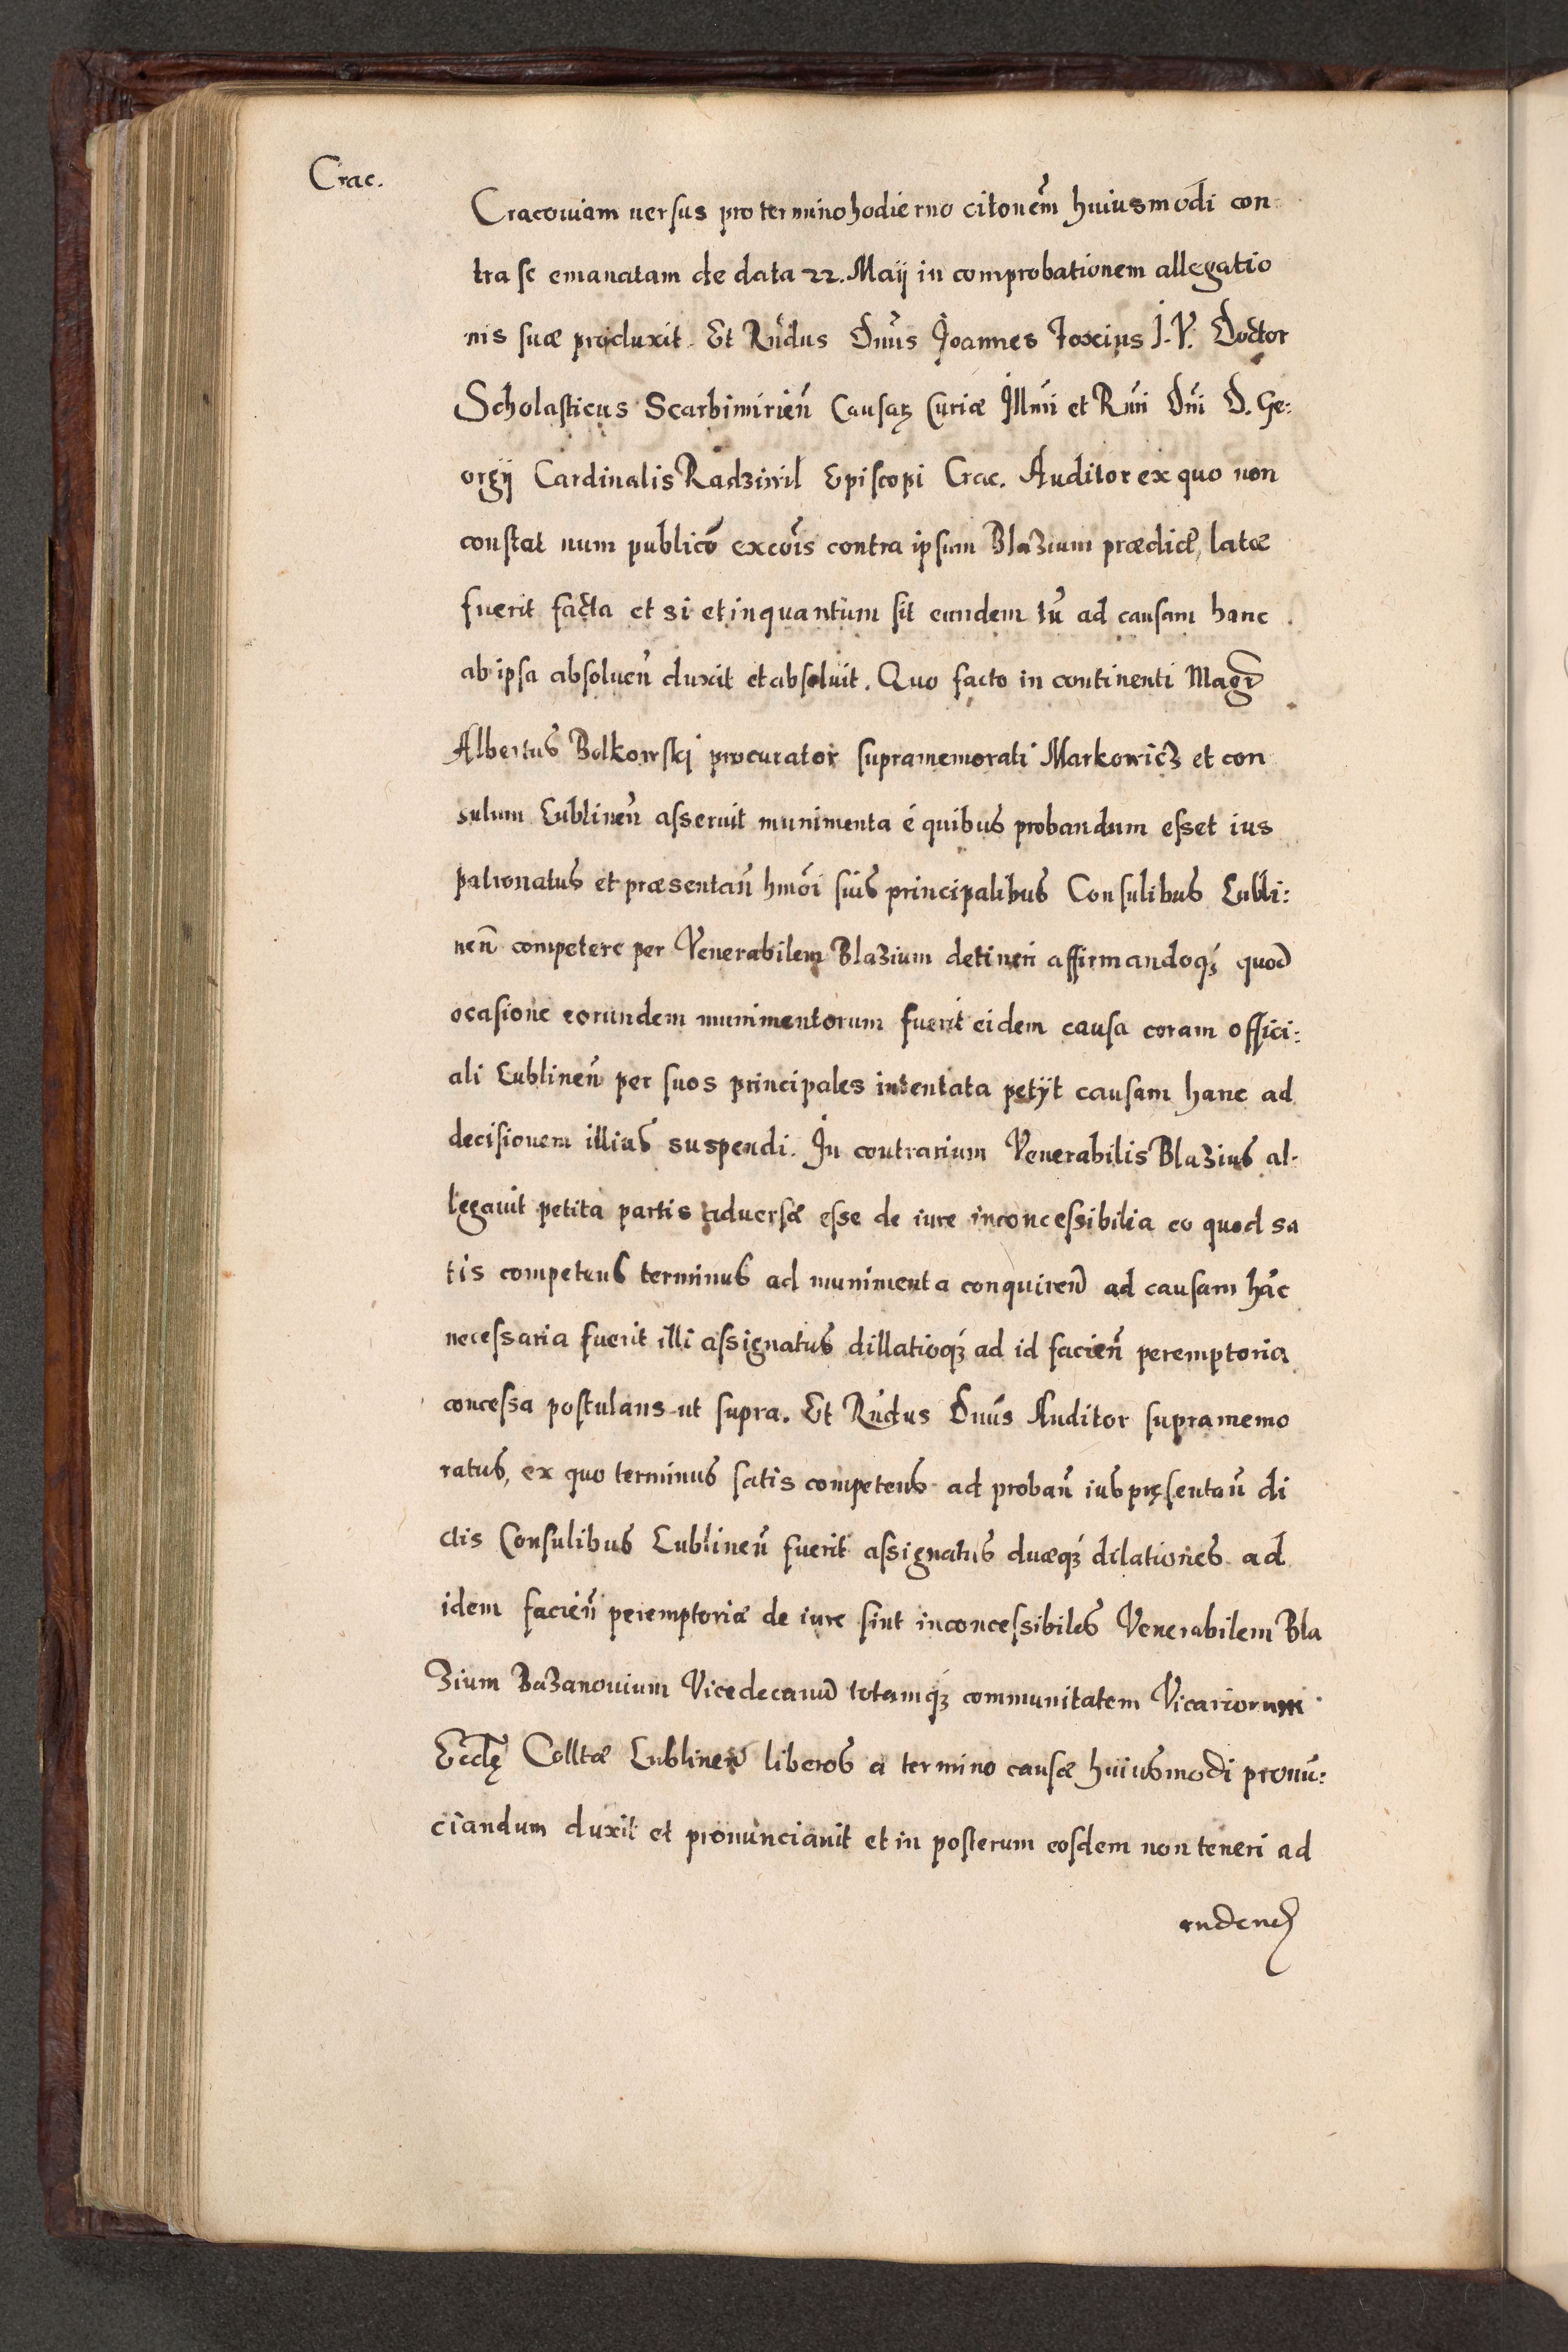 Crac.
Cracouiam uersus pro termino hodierno citonēm huiusmōdi con
tra se emanatam de data 22. Maij in comprobationem allegatio
nis suæ produxit. Et Rn̄dus Dn̄us Joannes Foxius J. V. Doctor
Scholasticus Scarbimirien̄ Causaꝝ Curiæ Illm̄i et Rm̄i Dn̄i D. Ge:
orgij Cardinalis Radziwil Episcopi Crac. Auditor ex quo non
constat num publicō excōis contra ipsum Blazium prædictę latæ
fuerit facta et si et inquantum sit eundem tū ad causam hanc
ab ipsa absoluen̄ duxit et absoluit. Quo facto in continenti Magr̄
Albertus Bolkowski procurator supramemorati Markowicz et con
sulum Lublinen̄ asseruit munimenta é quibus probandum esset ius
patronatus et præsentan̄ hmōi suis principalibus Consulibus Lubli:
nen̄ competere per Venerabilem Blazium detineri affirmandoqꝫ quod
ocasione eorundem munimentorum fuerit eidem causa coram offici:
ali Lublinen̄ per suos principales intentata petijt causam hanc ad
decisionem illius suspendi. In contrarium Venerabilis Blazius al-
legauit petita partis aduersæ esse de iure inconcessibilia eo quod sa
tis competens terminus ad munimenta conquiren̄ ad causam hāc
necessaria fuerit illi assignatus dillatioqꝫ ad id facien̄ peremptoria
concessa postulans ut supra. Et Rn̄dus Dn̄us Auditor supramemo
ratus, ex quo terminus satis competens ad proban̄ ius pręsentan̄ di
ctis Consulibus Lublinen̄ fuerit assignatus duæqꝫ dilationes ad
idem facien̄ peremptoriæ de iure sint inconcessibiles Venerabilem Bla
zium Bazanouium Vicedecanū totamqꝫ communitatem Vicariorum
Eccl̄ę Colltæ Lublinen̄ liberos a termino causæ huiusmodi pronū:
ciandum duxit et pronunciauit et in posterum eosdem non teneri ad